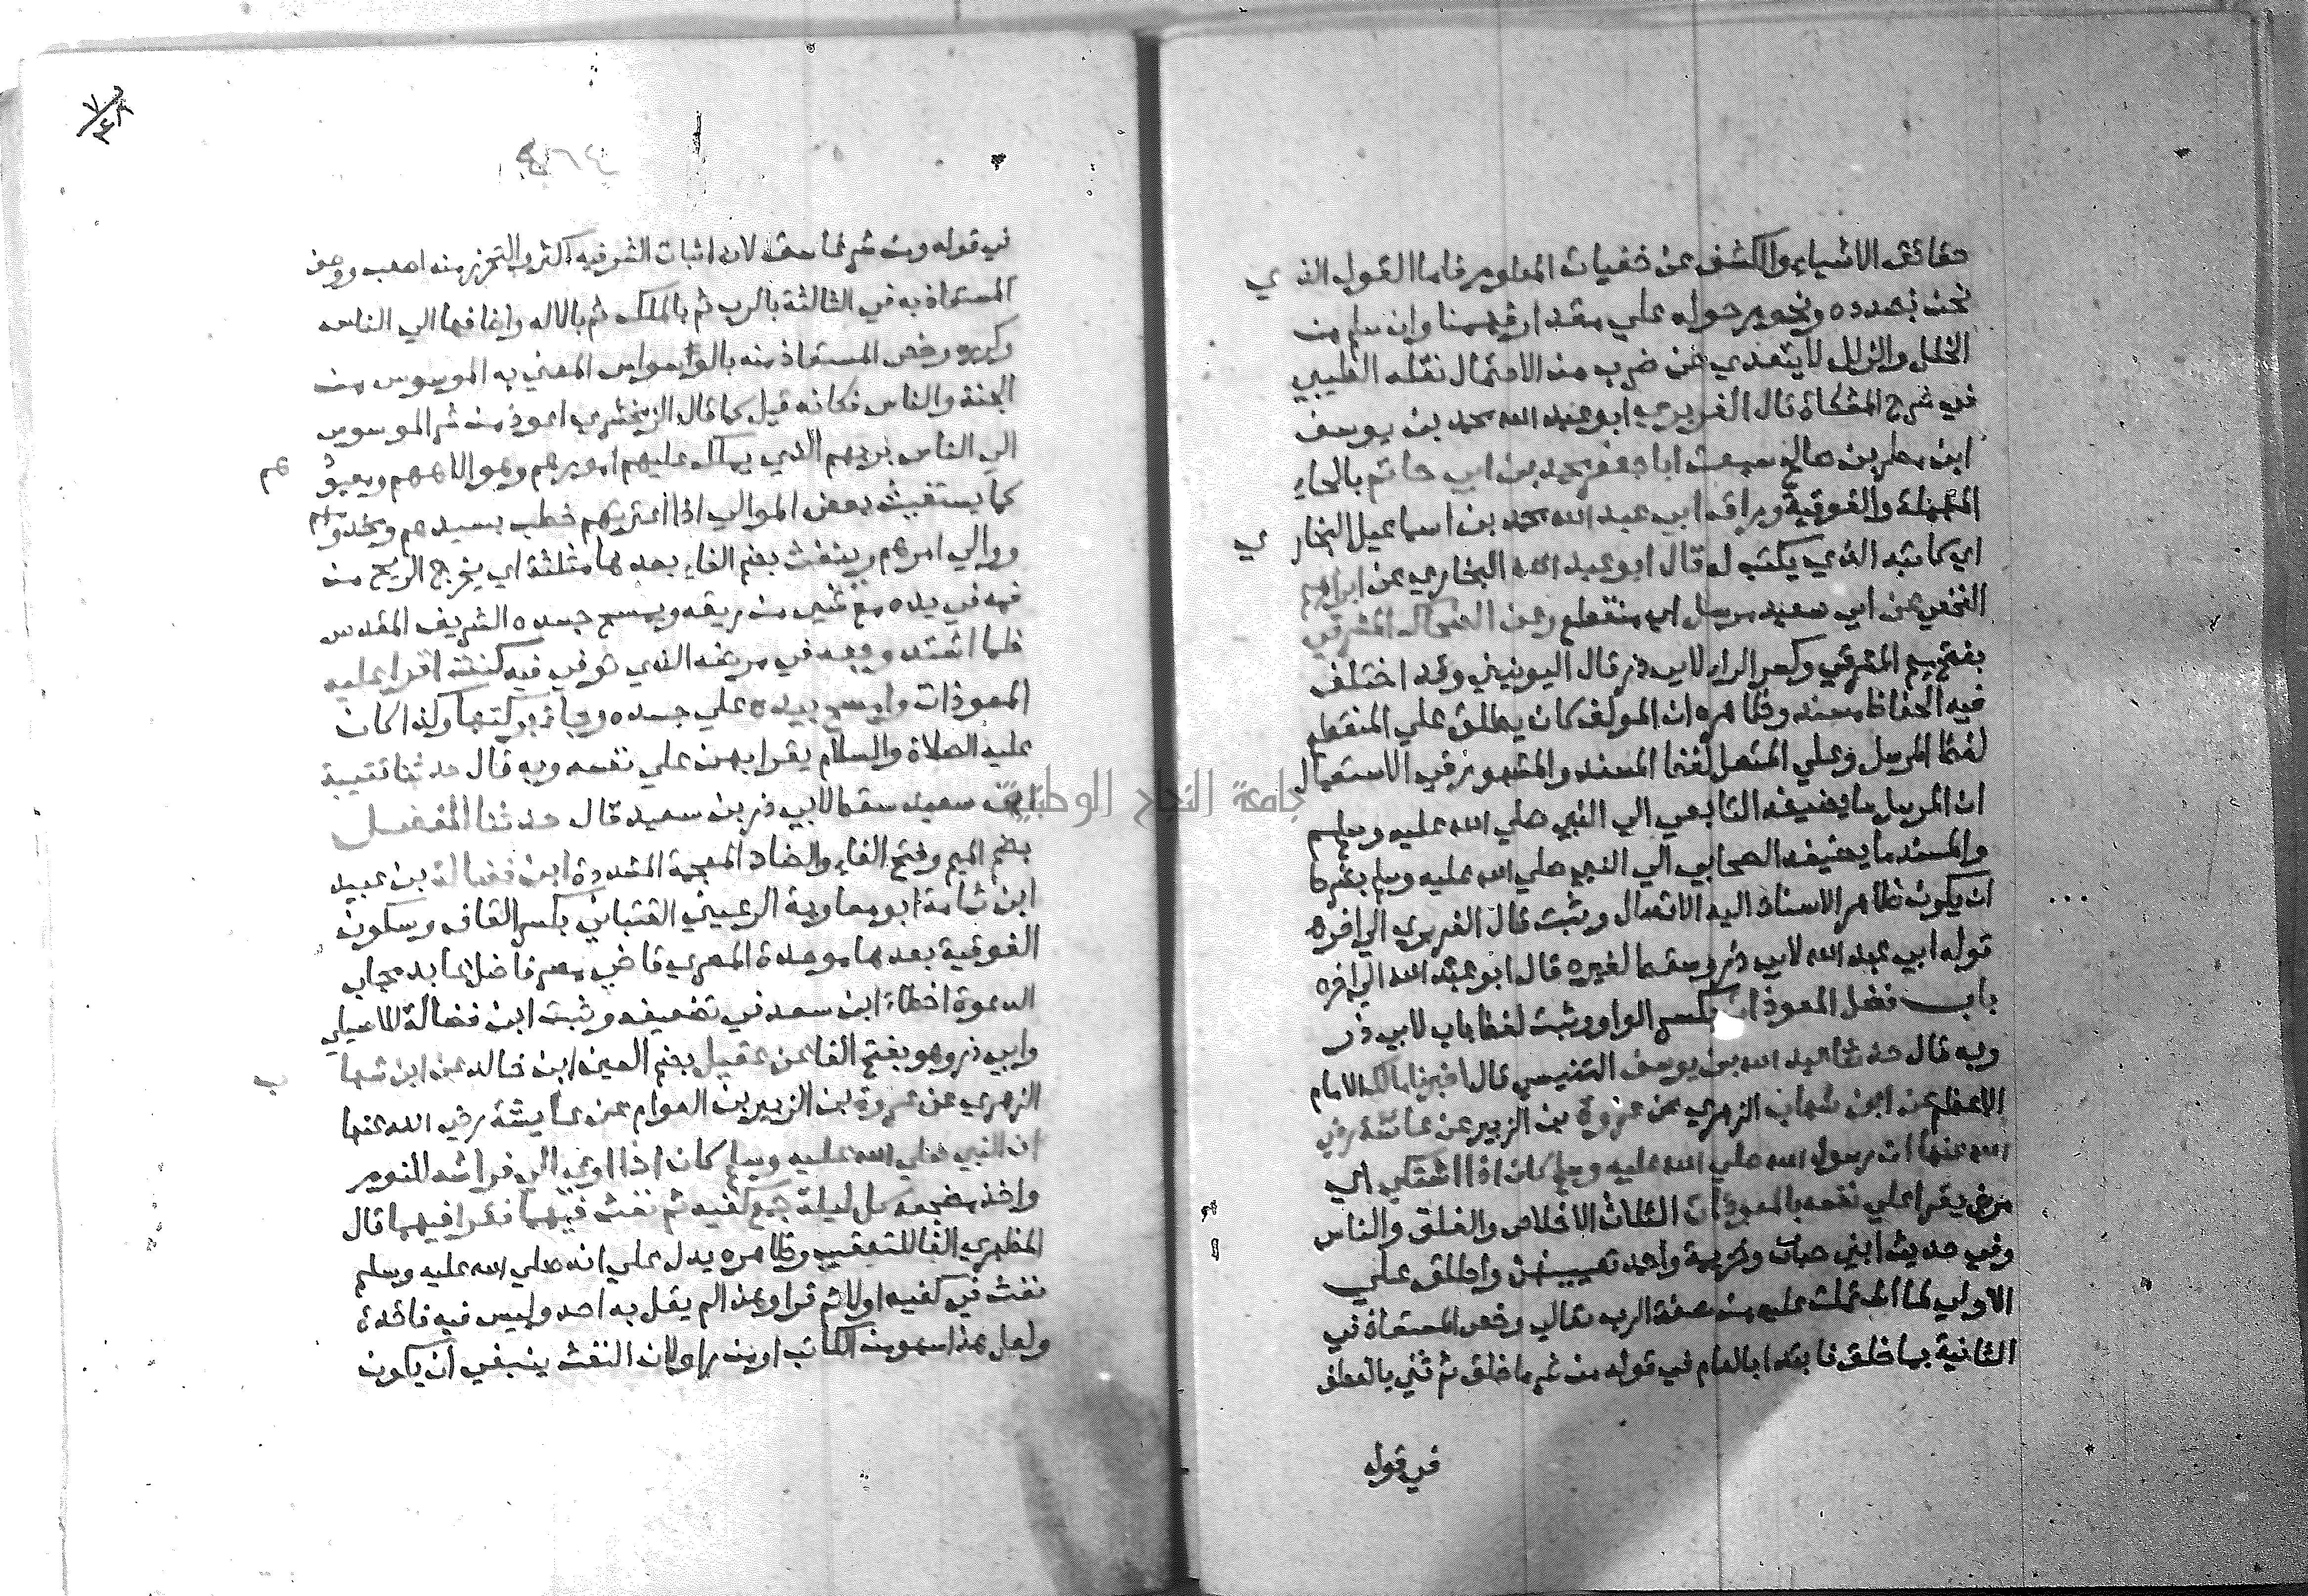 حقائق الاشياء والكشف عن خفيات المعلوم فاما القول الذي
نحن بصدده ونحوم حوله علي مقدار فهمنا وان سلم من
الخلل والزلل لا يتعدي عن ضرب من الاحتمال نقله الطيبي
في شرح المشكاة قال الفربري ابو عبد الله محمد بن يوسف
ابن مطر بن صالح سمعت ابا جعفر محمد بن ابي حاتم بالحاء
المهملة والفوقية وراق ابي عبد الله محمد بن اسماعيل البخاري
اي كاتبه الذي يكتب له قال ابو عبد الله البخاري عن ابراهيم
النخعي عن ابي سعيد مرسل اي منقطع وعن الضحاك المشرقي
بفتح ميم المشرقي وكسر الراء لابي ذر قال اليونيني وقد اختلف
فيه الحفاظ مسند وظاهره ان المولف كان يطلق علي المنقطع
لفظ المرسل وعلي المتصل لفظ المسند والمشهور في الاستعمال
ان المرسل ما يضيفه التابعي الي النبي صلي الله عليه وسلم
والمسند ما يضيفه الصحابي الي النبي صلي الله عليه وسلم بشرط
ان يكون ظاهر الاسناد اليه الاتصال وثبت قال الفربري الي اخره
قوله ابي عبد الله لابي ذر وسقط لغيره قال ابو عبد الله الي اخره
باب فضل المعوذات بكسر الواو وثبت لفظ باب لابي ذر
وبه قال حدثنا عبد الله بن يوسف التنيسي قال اخبرنا مالك الامام
الاعظم عن ابن شهاب الزهري عن عروة بن الزبير عن عائشة رضي
الله عنها ان رسول الله صلي الله عليه وسلم كان اذا اشتكي اي
مرض يقرا علي نفسه بالمعوذات الثلاث الاخلاص والفلق والناس
وفي حديث ابني حبان وخزيمة واحمد تعيينهن واطلق علي
الاولي لما اشتملت عليه من صفة الرب تعالي وخص المستعاذ في
الثانية بما خلق فابتدا بالعام في قوله من شر ما خلق ثم ثني بالعطف
في قوله
في قوله ومن شر غاسق لان اثبات الشر فيه اكثر والتحرز منه اصعب ووصف
المستعاذ به في الثالثة بالرب ثم بالملك ثم بالاله واضافها الي الناس
وكرره وخص المستعاذ منه بالوسواس المعني به الموسوس من
الجنة والناس فكانه قيل كما قال الزمخشري اعوذ من شر الموسوس
الي الناس بربهم الذي يملك عليهم امورهم وهو الاههم ومعبودهم
كما يستغيث بعض الموالي اذا اعتريهم خطب بسيدهم ومخدومهم
ووالي امرهم وينفث بضم الفاء بعدها مثلثة اي يخرج الريح من
فمه في يده مع شيء من ريقه ويمسح جسده الشريف المقدس
فلما اشتد وجعه في مرضه الذي توفي فيه كنت اقرا عليه
المعوذات وامسح بيده علي جسده رجاء بركتها وكذا كان
عليه الصلاة والسلام يقرا بهن علي نفسه وبه قال حدثنا قتيبة
بن سعيد سقط لابي ذر بن سعيد قال حدثنا المفضل
بضم الميم وفتح الفاء والضاد المعجمة المشددة ابن فضالة بن عبيد
ابن ثمامة ابو معاوية الرعيني القتباني بكسر القاف وسكون
الفوقية بعدها موحدة المصري قاضي مصر فاضل عابد مجاب
الدعوة اخطا ابن سعد في تضعيفه وثبت ابن فضالة للاصيلي
وابي ذر وهو بفتح الفا عن عقيل بضم العين ابن خالد عن ابن شهاب
الزهري عن عروة بن الزبير بن العوام عن عايشة رضي الله عنها
ان النبي صلي الله عليه وسلم كان اذا اوي الي فراشه للنوم
واخذ مضجعه كل ليلة جمع كفيه ثم نفث فيهما فقرا فيهما قال
المظهري الفا للتعقيب وظاهره يدل علي انه صلي الله عليه وسلم
نفث في كفيه اولا ثم قرا وهذا لم يقل به احد وليس فيه فائدة
ولعل هذا سهو من الكاتب او من راو لان النفث ينبغي ان يكون
جامعة النجاح الوطنية